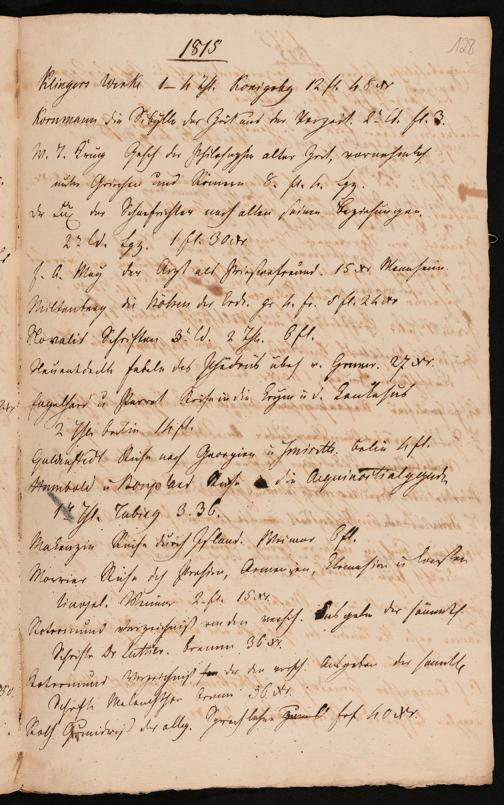 128
1815
Klingers Werke 1–4 Th. Königsbg 12 fl. 48 xr
Kornmann die Sibylle der Zeit aus der Vorzeit. 2 Bd. fl. 3.
W. T. Krug Gesch der Philosophie alter Zeit, vornehmlich
unter Griechen und Römern 8. fl. 4. Lpz.
der Scharfrichter nach allen seinen Beziehungen.
2 Bd. Lpz. 1 fl. 30 xr.
F. A. May der Arzt als Priesterfreund. 15 xr Mannheim.
Miltenberg die Höhen der Erde. gr 4. Fr. 5 fl. 24 xr
Novalis Schriften 3 Ed. 2 Th. 6 fl.
Neuentdeckte Fabeln des Phädrus übers v. 27 xr.
Engelhard u Parrot Reise in die Krym u d. Kaukasus
2 Thle Berlin 14 fl.
Güldenstädt Reise nach Georgien u Imirette. Berlin 4 fl.
Humbold u Bonpland Reise in die Aequinoctialgegenden
1r Thl. Tübing 3. 36.
Makenzie Reise durch Island. Weimar 6 fl.
Morrier Reise dch Persien, Armenien, Kleinasien u Constan
tinopel. Weimar 2 fl. 15 xr.
Rotermund Verzeichniß von den versch. Ausgaben der sämmtl
Schrifte Dr Luther. Bremen 36 xr.
Rotermund Verzeichniß der versch. Ausgaben der sämtl
Schrifte Melanchthon Brem. 36 xr.
Roth Grundriß der allg. Sprachlehre 40 xr.